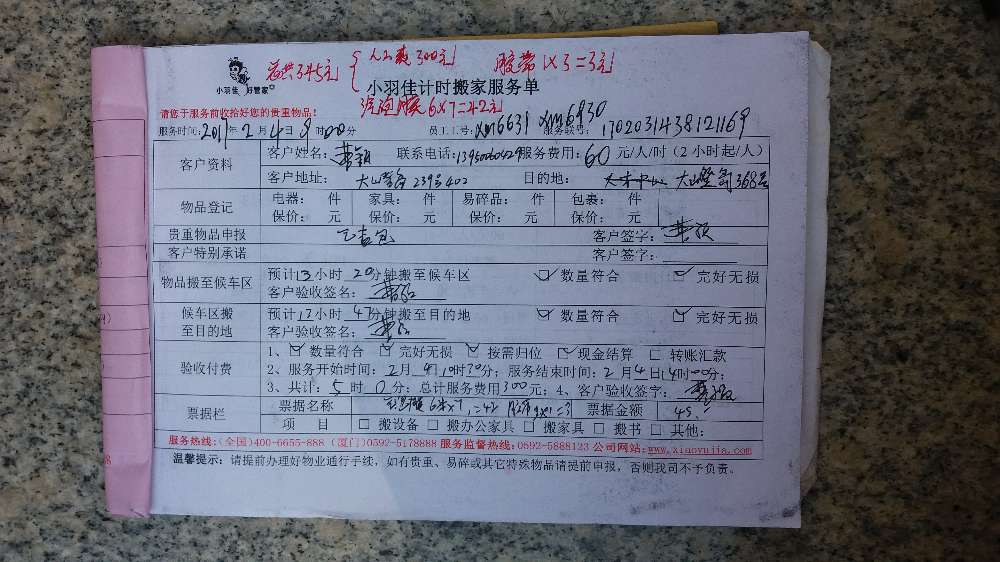 总共345元 { 人工费300元 胶带1×3=3元
小羽佳 好管家
小羽佳计时搬家服务单
汽泡膜6×7=42元
请您于服务前收拾好您的贵重物品!
服务时间:2017年2月4日9时00分 员工工号:xm6631 xm6930 服务联号:1702031438121169
客户资料 客户姓名: 联系电话: 服务费用:60元/人/时(2小时起/人)
客户地址: 239号402 目的地: 368号
物品登记 电器: 件 家具: 件 易碎品: 件 包裹: 件
保价: 元 保价: 元 保价: 元 保价: 元
贵重物品申报 已查包 客户签字:
客户特别承诺 客户签字:
物品搬至候车区 预计13小时20分钟搬至候车区 ☑数量符合 ☑完好无损
客户验收签名:
候车区搬至目的地 预计12小时47分钟搬至目的地 ☑数量符合 ☑完好无损
客户验收签名:
验收付费 1、☑数量符合 ☑完好无损 ☑按需归位 ☑现金结算 □转账汇款
2、服务开始时间:2月4日 时 分;服务结束时间:2月4日14时00分;
3、共计:5时0分;总计服务费用300元;4、客户验收签字:
票据栏 票据名称 6米×7=42 胶带3×1=3 票据金额 45.
项 目 □搬设备 □搬办公家具 □搬家具 □搬书 □其他:
服务热线:(全国)400-6655-888 (厦门)0592-5178888 服务监督热线:0592-5888123 公司网站:www.xiaoyujia.com
温馨提示:请提前办理好物业通行手续,如有贵重、易碎或其它特殊物品请提前申报,否则我司不予负责。